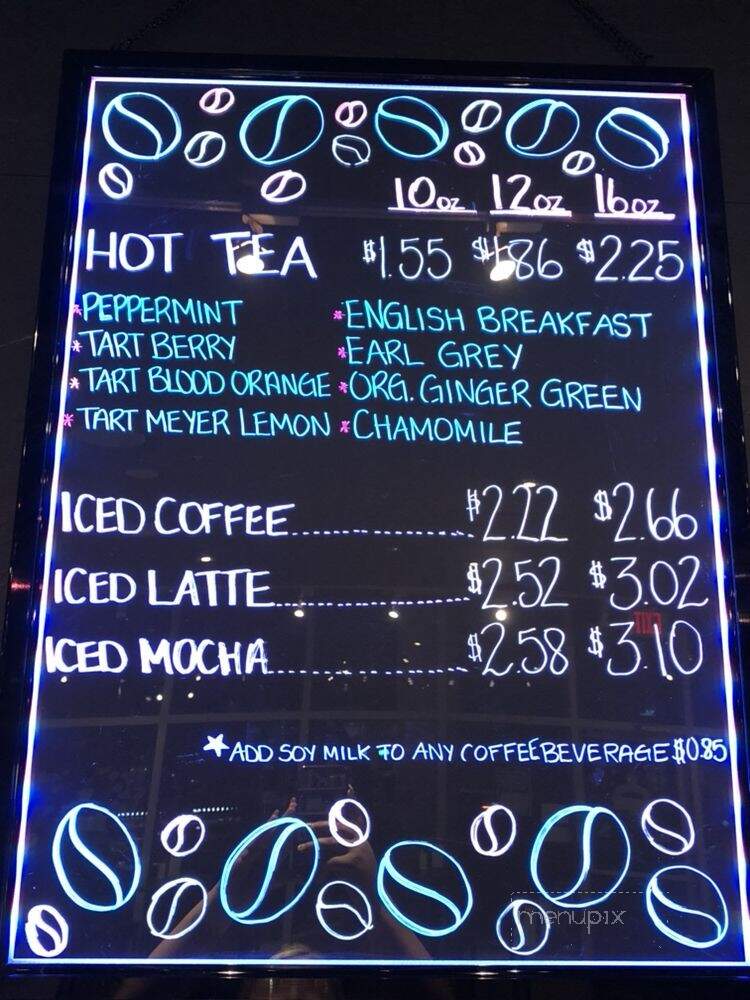 10oz 12oz 16oz
HOT TEA $1.55 $1.86 $2.25
*PEPPERMINT *ENGLISH BREAKFAST
*TART BERRY *EARL GREY
*TART BLOOD ORANGE *ORG. GINGER GREEN
*TART MEYER LEMON *CHAMOMILE
ICED COFFEE.................... $2.22 $2.66
ICED LATTE...................... $2.52 $3.02
ICED MOCHA...................... $2.58 $3.10
*ADD SOY MILK TO ANY COFFEE BEVERAGE $0.85
menupix